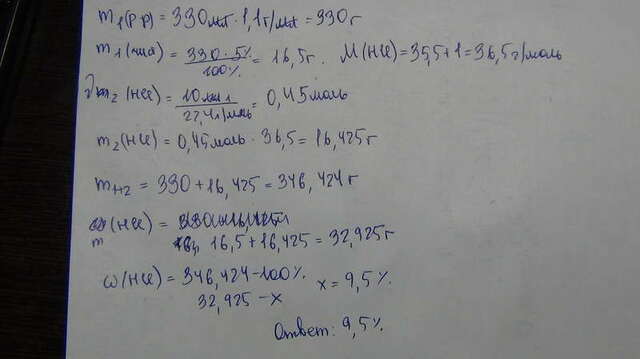 m₁(р-р) = 330мл · 1,1г/мл = 330г
m₁(чист) = 330·5% / 100% = 16,5г. M(HCl) = 35,5+1 = 36,5г/моль
m₂(HCl) = 10 / 22,4л/моль = 0,45моль
m₂(HCl) = 0,45моль · 36,5 = 16,425г
= 330 + 16,425 = 346,424г
m(HCl) = 16,5 + 16,425 = 32,925г
ω(HCl) = 346,424 - 100% x = 9,5%.
32,925 - x
Ответ: 9,5%